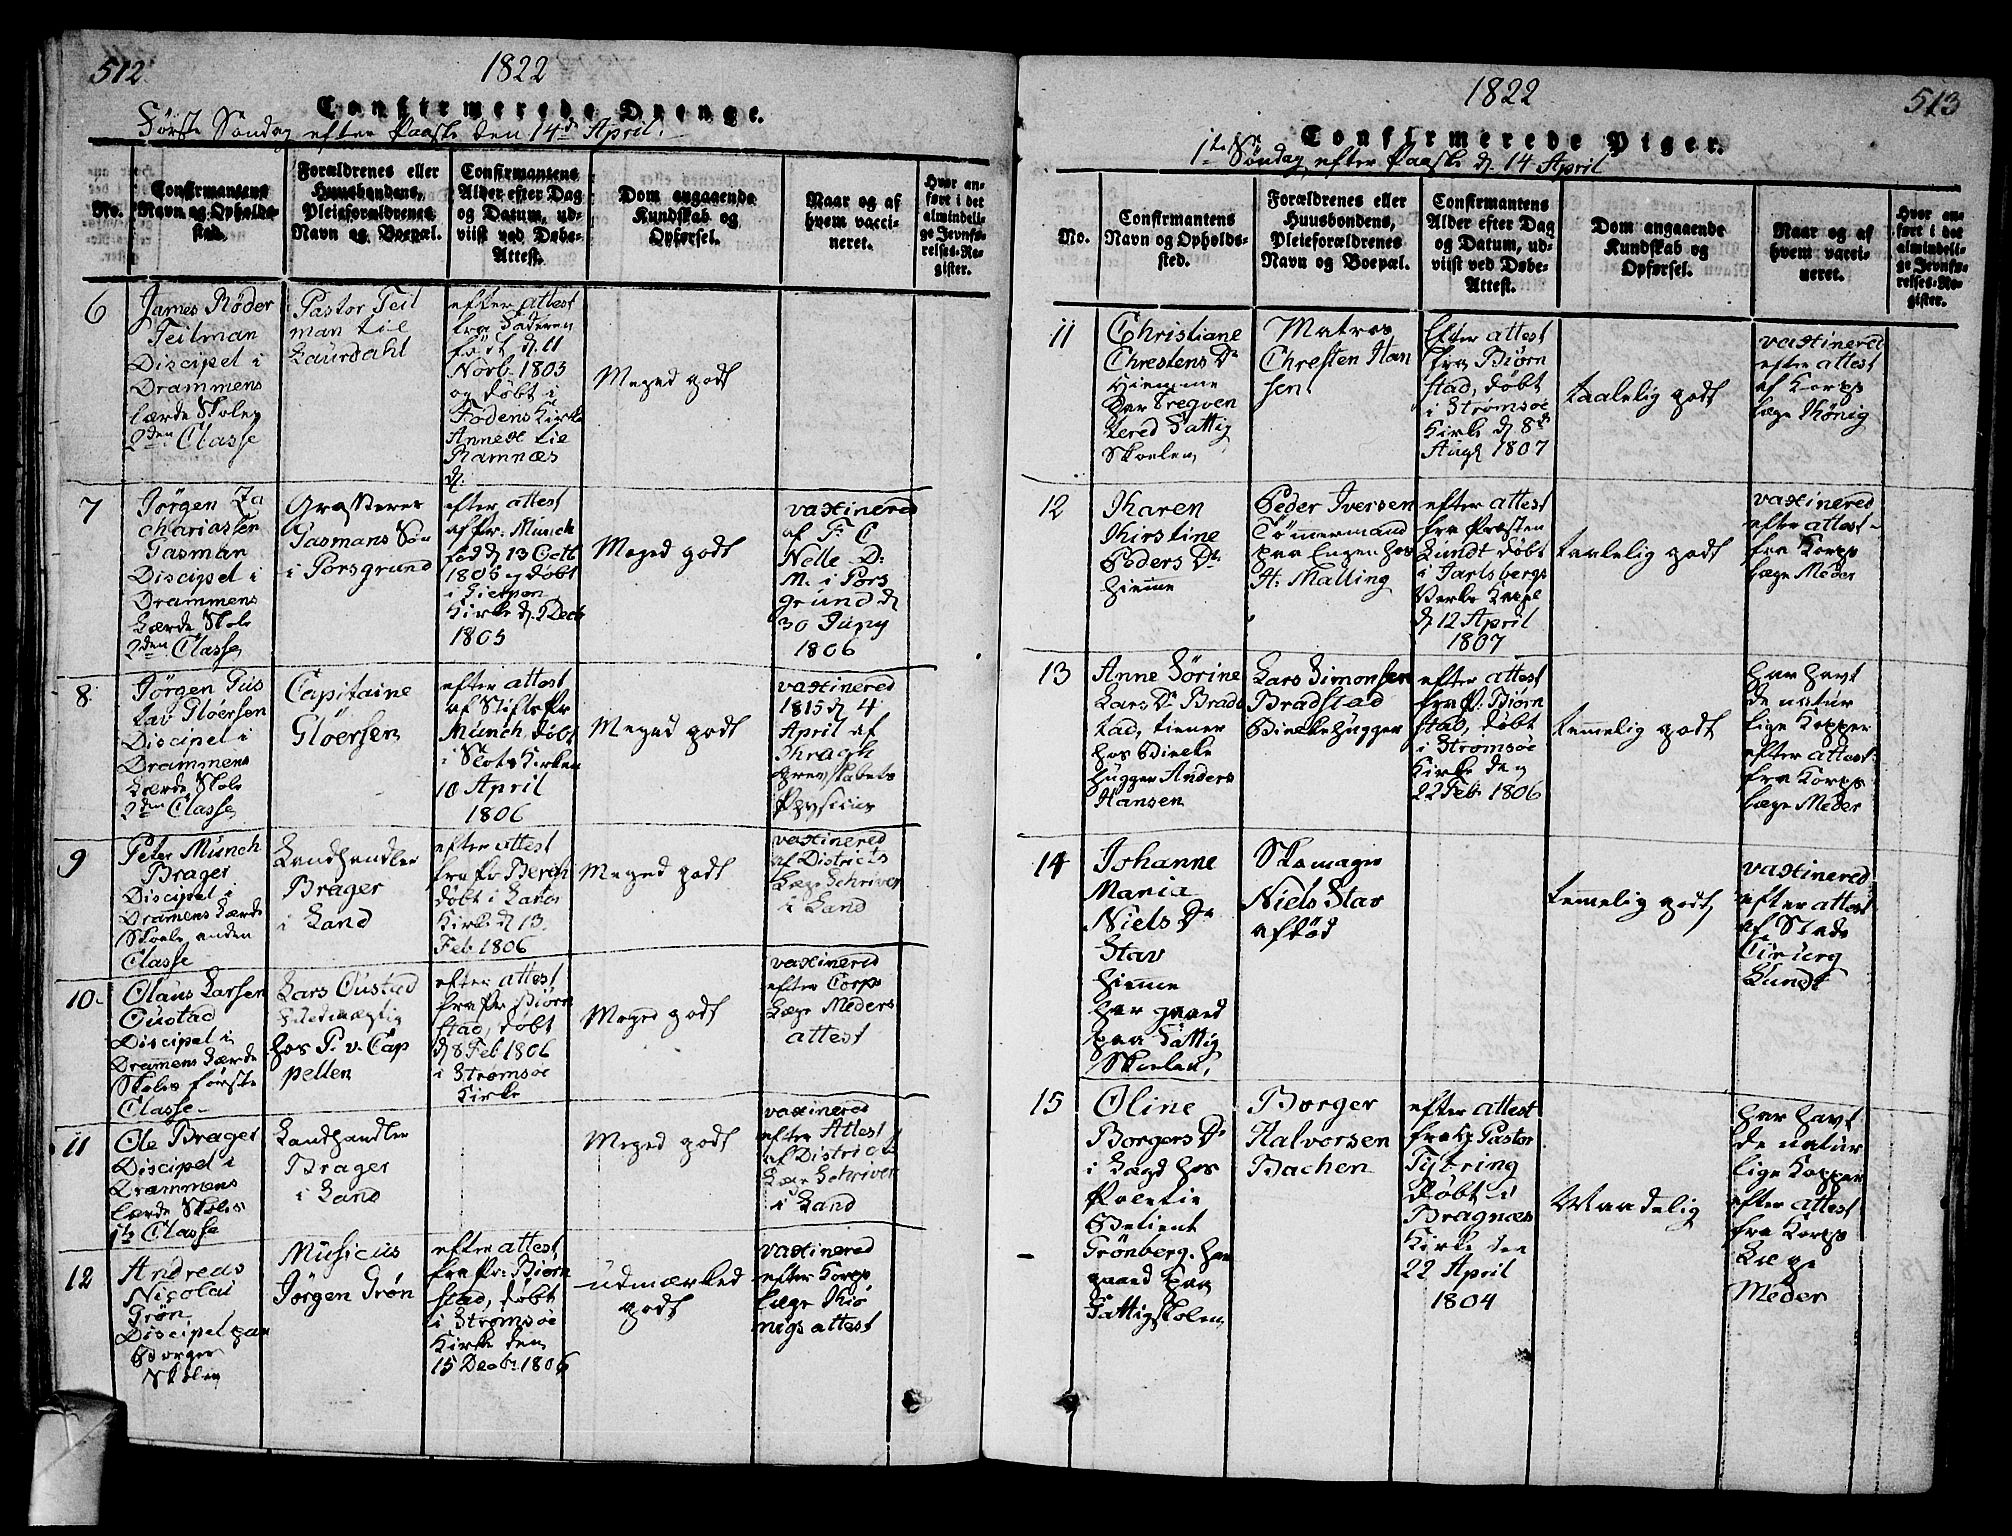 512
1822
Confirmerede Drenge.
Første Søndag efter Paaske den 14de April.
No.
Confirmantens
Navn og Opholds-
sted.
Forældrenes eller
Huusbondens,
Pleieforældrenes
Navn og Boepæl.
Confirmantens
Alder efter Dag
og Datum, ud-
viist ved Døbe-
Attest.
Dom angaaende
Kundskab og
Opførsel.
Naar og af
hvem vacci-
neret.
Hvor an-
ført i det
almindeli-
ge Jevnfø-
relses-Re-
gister.
6
James Røder
Teilman
Discipel i
Drammens
lærde Skoles
2den Classe
Pastor Teil
man til
Laurdahl
efter attest
fra Faderen
født d. 11
Novb. 1803
og døbt i
Fodens Kirke
Annex til
Ramnæs
d.
Meged godt
7
Jørgen Za
chariassen
Tasman
Discipel i
Drammens
Lærde Skole
2den Classe
Tasmans Søn
i Porsgrund
efter attest
af Pr. Munch
1805 og døbt
i
Kirke d. 5 Decb
1805
Meged godt
vaxinered
af F. C
Nelle D:
M. i Pors
grund d
30 Juny
1806
8
Jørgen Gus
tav Gløersen
Discipel i
Drammens
Lærde Skole
2den Classe
Capitaine
Gløersen
efter attest
af Stifts Pr
Munch døbt
i Slots Kirken
10 April
1806
Meged godt
vaxinered
1815 d 4
April af
Thragh
Grevskabets
Physicus
9
Peter Munch
Brager
Discipel i
Dramens Lærde
Skole anden
Classe
Landhandler
Brager
i Land
efter attest
fra Pr Berch
døbt i Lands
Kirke d 13
Feb 1806
Meged godt
vaxinered
af Districts
Læge Schriver
i Land
10
Olaus Larsen
Oustad
Discipel i
Dramens Lærde
Skoles første
Classe
Lars Oustad
Fuldmægtig
hos P. v. Cap
pellen
efter attest
fra Pr Biørn
stad, døbt
d 8 Feb 1806
i Strømsøe
Kirke
Meged godt
vaxinered
efter Corps
Læge Meders
attest
11
Ole Brager
Discipel i
Drammens
lærde Skoles
1te Classe
Landhandler
Brager
i Land
Meged godt
vaxinered
efter Attest
af Districts
Læge Schriver
i Land
12
Andreas
Nicolai
Grøn
Discipel paa
Borger
Skolen
Musicus
Jørgen Grøn
efter attest
fra Pr: Biørn
stad, døbt
i Strømsøe
Kirke den
15 Decb. 1806
udmærked
godt
vaxinered
efter Korps
læge Thø
nigs attest
513
1822
Confirmerede Piger.
1te Søndag efter Paaske d. 14 April
No.
Confirmantens
Navn og Opholds-
sted.
Forældrenes eller
Huusbondens,
Pleieforældrenes
Navn og Boepæl.
Confirmantens
Alder efter Dag
og Datum, ud-
viist ved Døbe-
Attest.
Dom angaaende
Kundskab og
Opførsel.
Naar og af
hvem vacci-
neret.
Hvor an-
ført i det
almindeli-
ge Jevnfø-
relses-Re-
gister.
11
Christiane
Chrestens Dr
hiemme
har freqven
tered Fattig
Skolen
Matros
Chresten Han
sen
Efter attest
fra Biørn
stad, døbt
i Strømsøe
Kirke d 8de
Augs 1807
taalelig godt
vaxinered
efter attest
af Korps
læge Thønig
12
Karen
Kirstine
Peders Dr
hiemme
Peder Iversen
Tømmermand
paa Engen hos
H. Malling
efter attest
fra Præsten
Lundt døbt
i Jarlsbergs
Verks Capel
d 12 April
1807
taalelig godt
vaxinered
efter attest
fra Korps
læge Meder
13
Anne Sørine
Lars Dr Brad
stad, tiener
hos Blikke
hugger Anders
Hansen
Lars Simonsen
Bradstad
efter attest
fra P. Biørn
stad, døbt
i Strømsøe
Kirke den
22 Feb. 1806
temmelig godt
har havt
de natur
lige Kopper
efter attest
fra Korps
læge Meder
14
Johanne
Maria
Niels Dr
Stav
hiemme
har gaaed
paa Fattig
Skolen
Skomager
Niels Stav
afdød
temmelig godt
vaxinered
efter attest
af Stads
Cirurg
Lundt
15
Oline
Borgers Dr
i Lægd hos
Politie
Betient
Grønberg. har
gaaed paa
Fattigskolen
Borger
Halvorsen
Bachen
efter attest
fra Hr Pastor
Tybring
døbt i
Bragnæs
Kirke den
22 April
1804
Maadelig
har havt
de natur
lige Kopper
efter attest
fra Korps
Læge
Meder